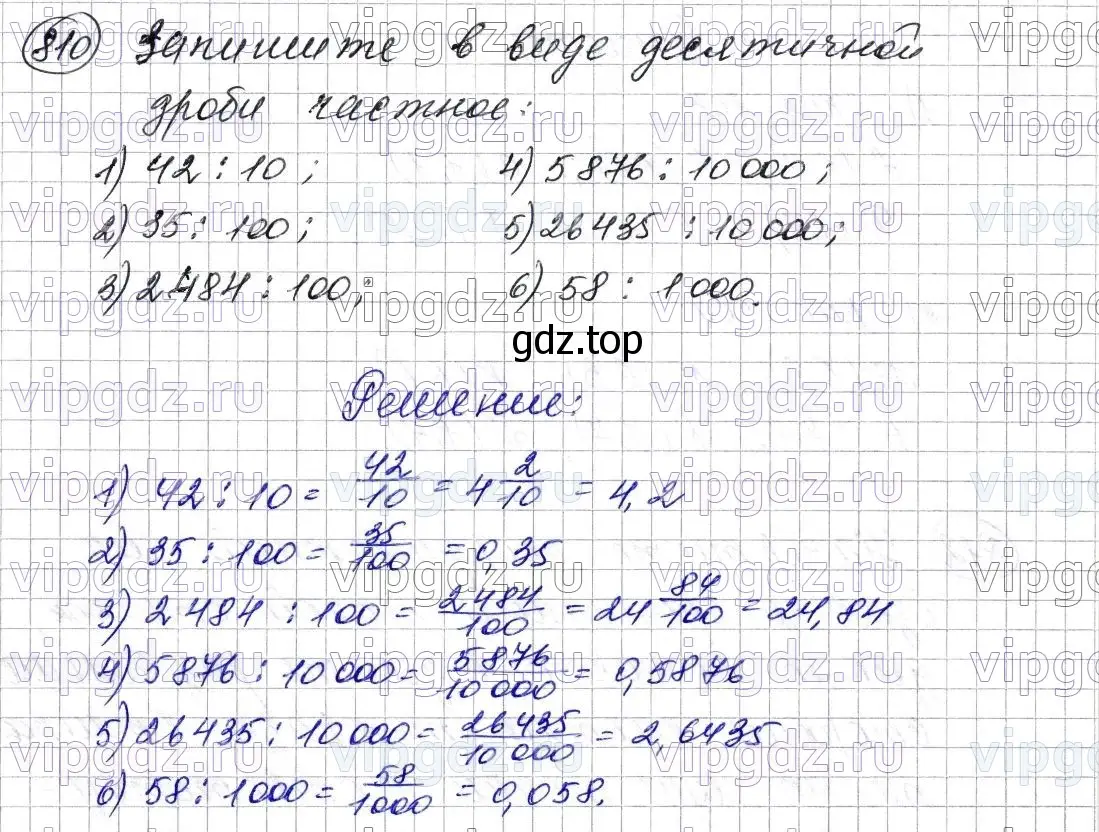 810 Запишите в виде десятичной
дроби частное:
1) 42 : 10 ; 4) 5876 : 10 000;
2) 35 : 100; 5) 26 435 : 10 000;
3) 2484 : 100; 6) 58 : 1 000.
gdz.top
Решение:
1) 42 : 10 = 42/10 = 4 2/10 = 4,2
2) 35 : 100 = 35/100 = 0,35
3) 2 484 : 100 = 2 484/100 = 24 84/100 = 24,84
4) 5 876 : 10 000 = 5 876/10 000 = 0,5876
5) 26 435 : 10 000 = 26 435/10 000 = 2,6435
6) 58 : 1000 = 58/1000 = 0,058.
vipgdz.ru